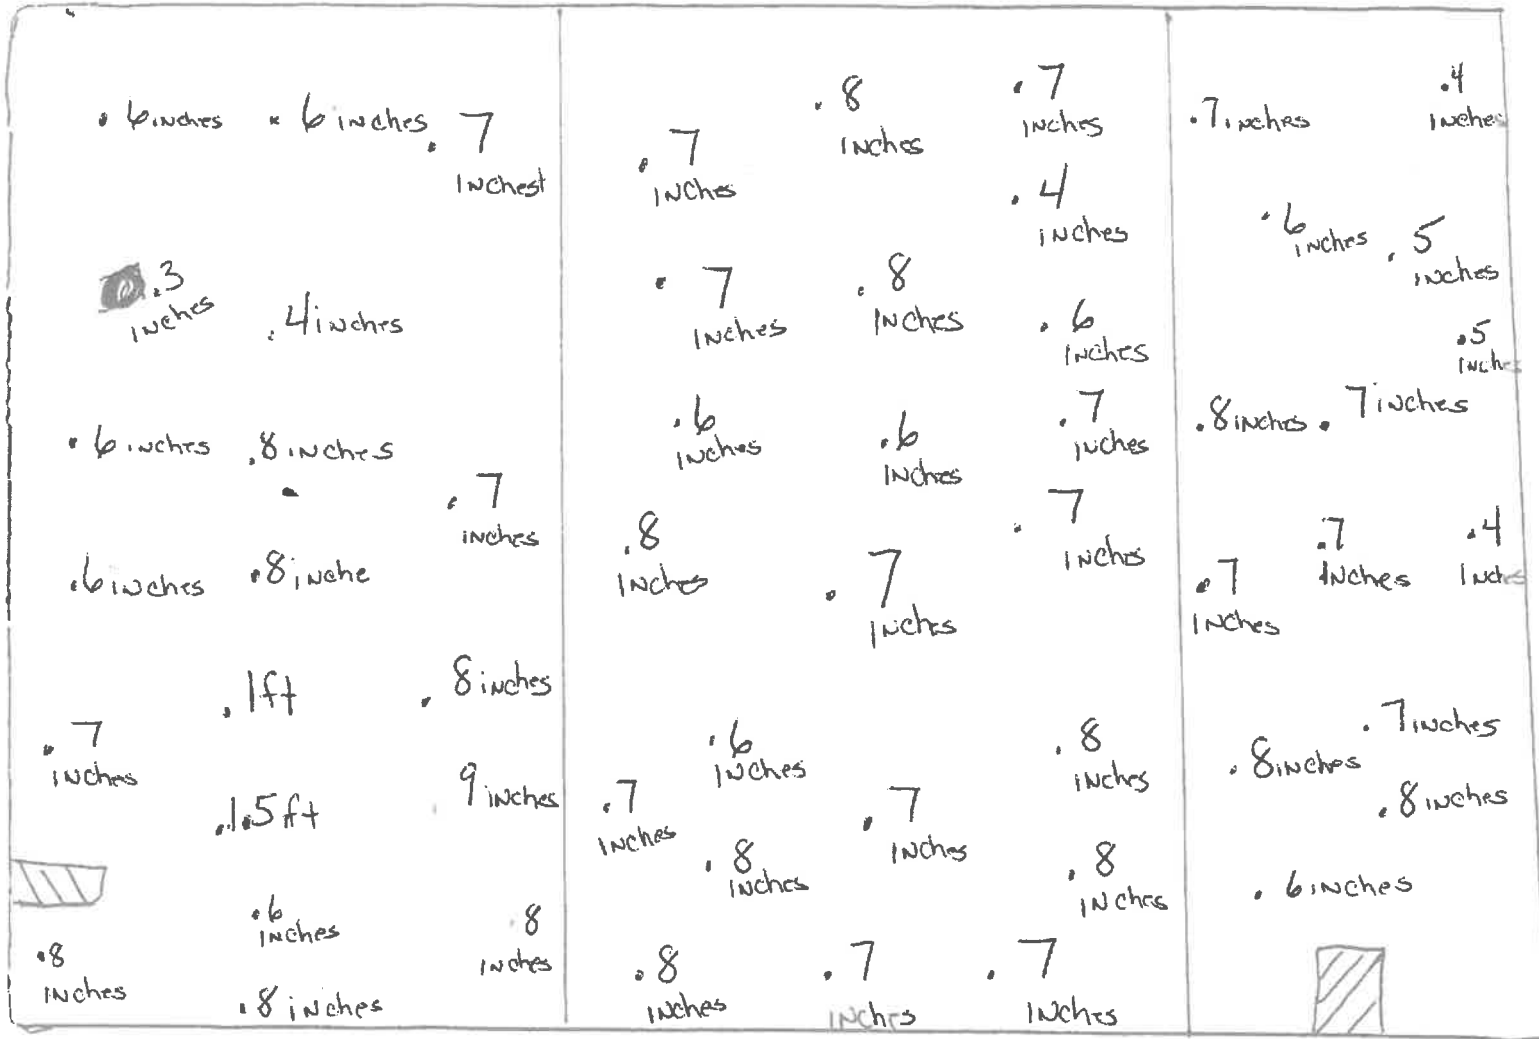 . 6 inches
. 6 inches
. 7
inchest
.3
inches
. 4 inches
. 6 inches
. 8 inches
. 7
inches
. 6 inches
. 8 inche
. 1ft
. 8 inches
. 7
inches
. 1.5 ft
. 9 inches
. 6
inches
. 8
inches
. 8
inches
. 8 inches
. 8
inches
. 7
inches
. 7
inches
. 4
inches
. 7
inches
. 8
inches
. 6
inches
. 6
inches
. 6
inches
. 7
inches
. 8
inches
. 7
inches
. 7
inches
. 6
inches
. 8
inches
. 7
inches
. 7
inches
. 8
inches
. 8
inches
. 8
inches
. 7
inches
. 7
inches
. 7 inches
. 4
inches
. 6
inches
. 5
inches
. 5
inch
. 8 inches
. 7 inches
. 7
inches
. 4
inches
. 7
inches
. 7 inches
. 8 inches
. 8 inches
. 6 inches